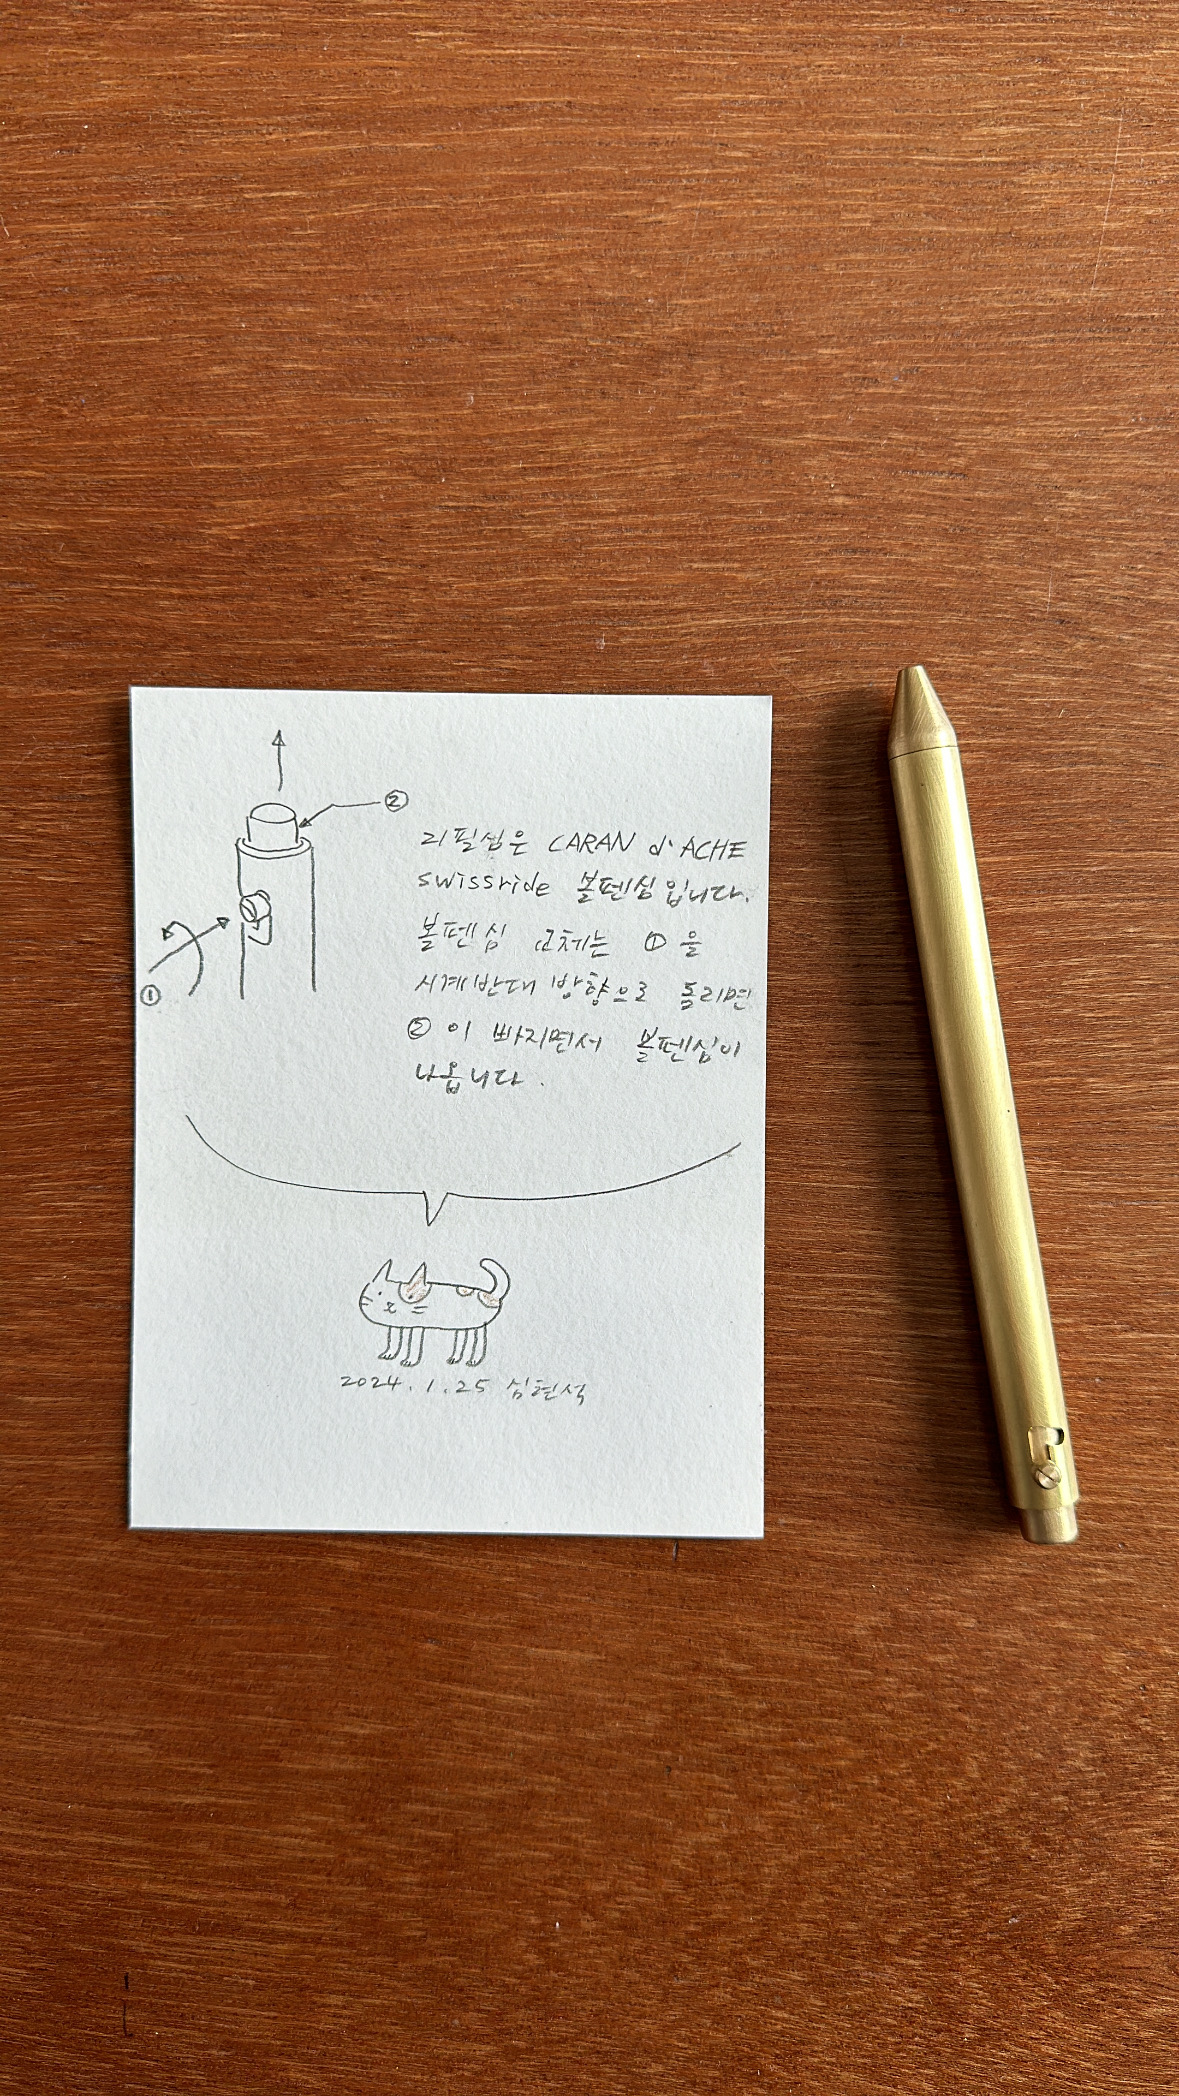 ②
리필심은 CARAN d'ACHE
swissride 볼펜심입니다.
볼펜심 교체는 ① 을
시계반대 방향으로 돌리면
② 이 빠지면서 볼펜심이
나옵니다.
①
2024.1.25 심현석